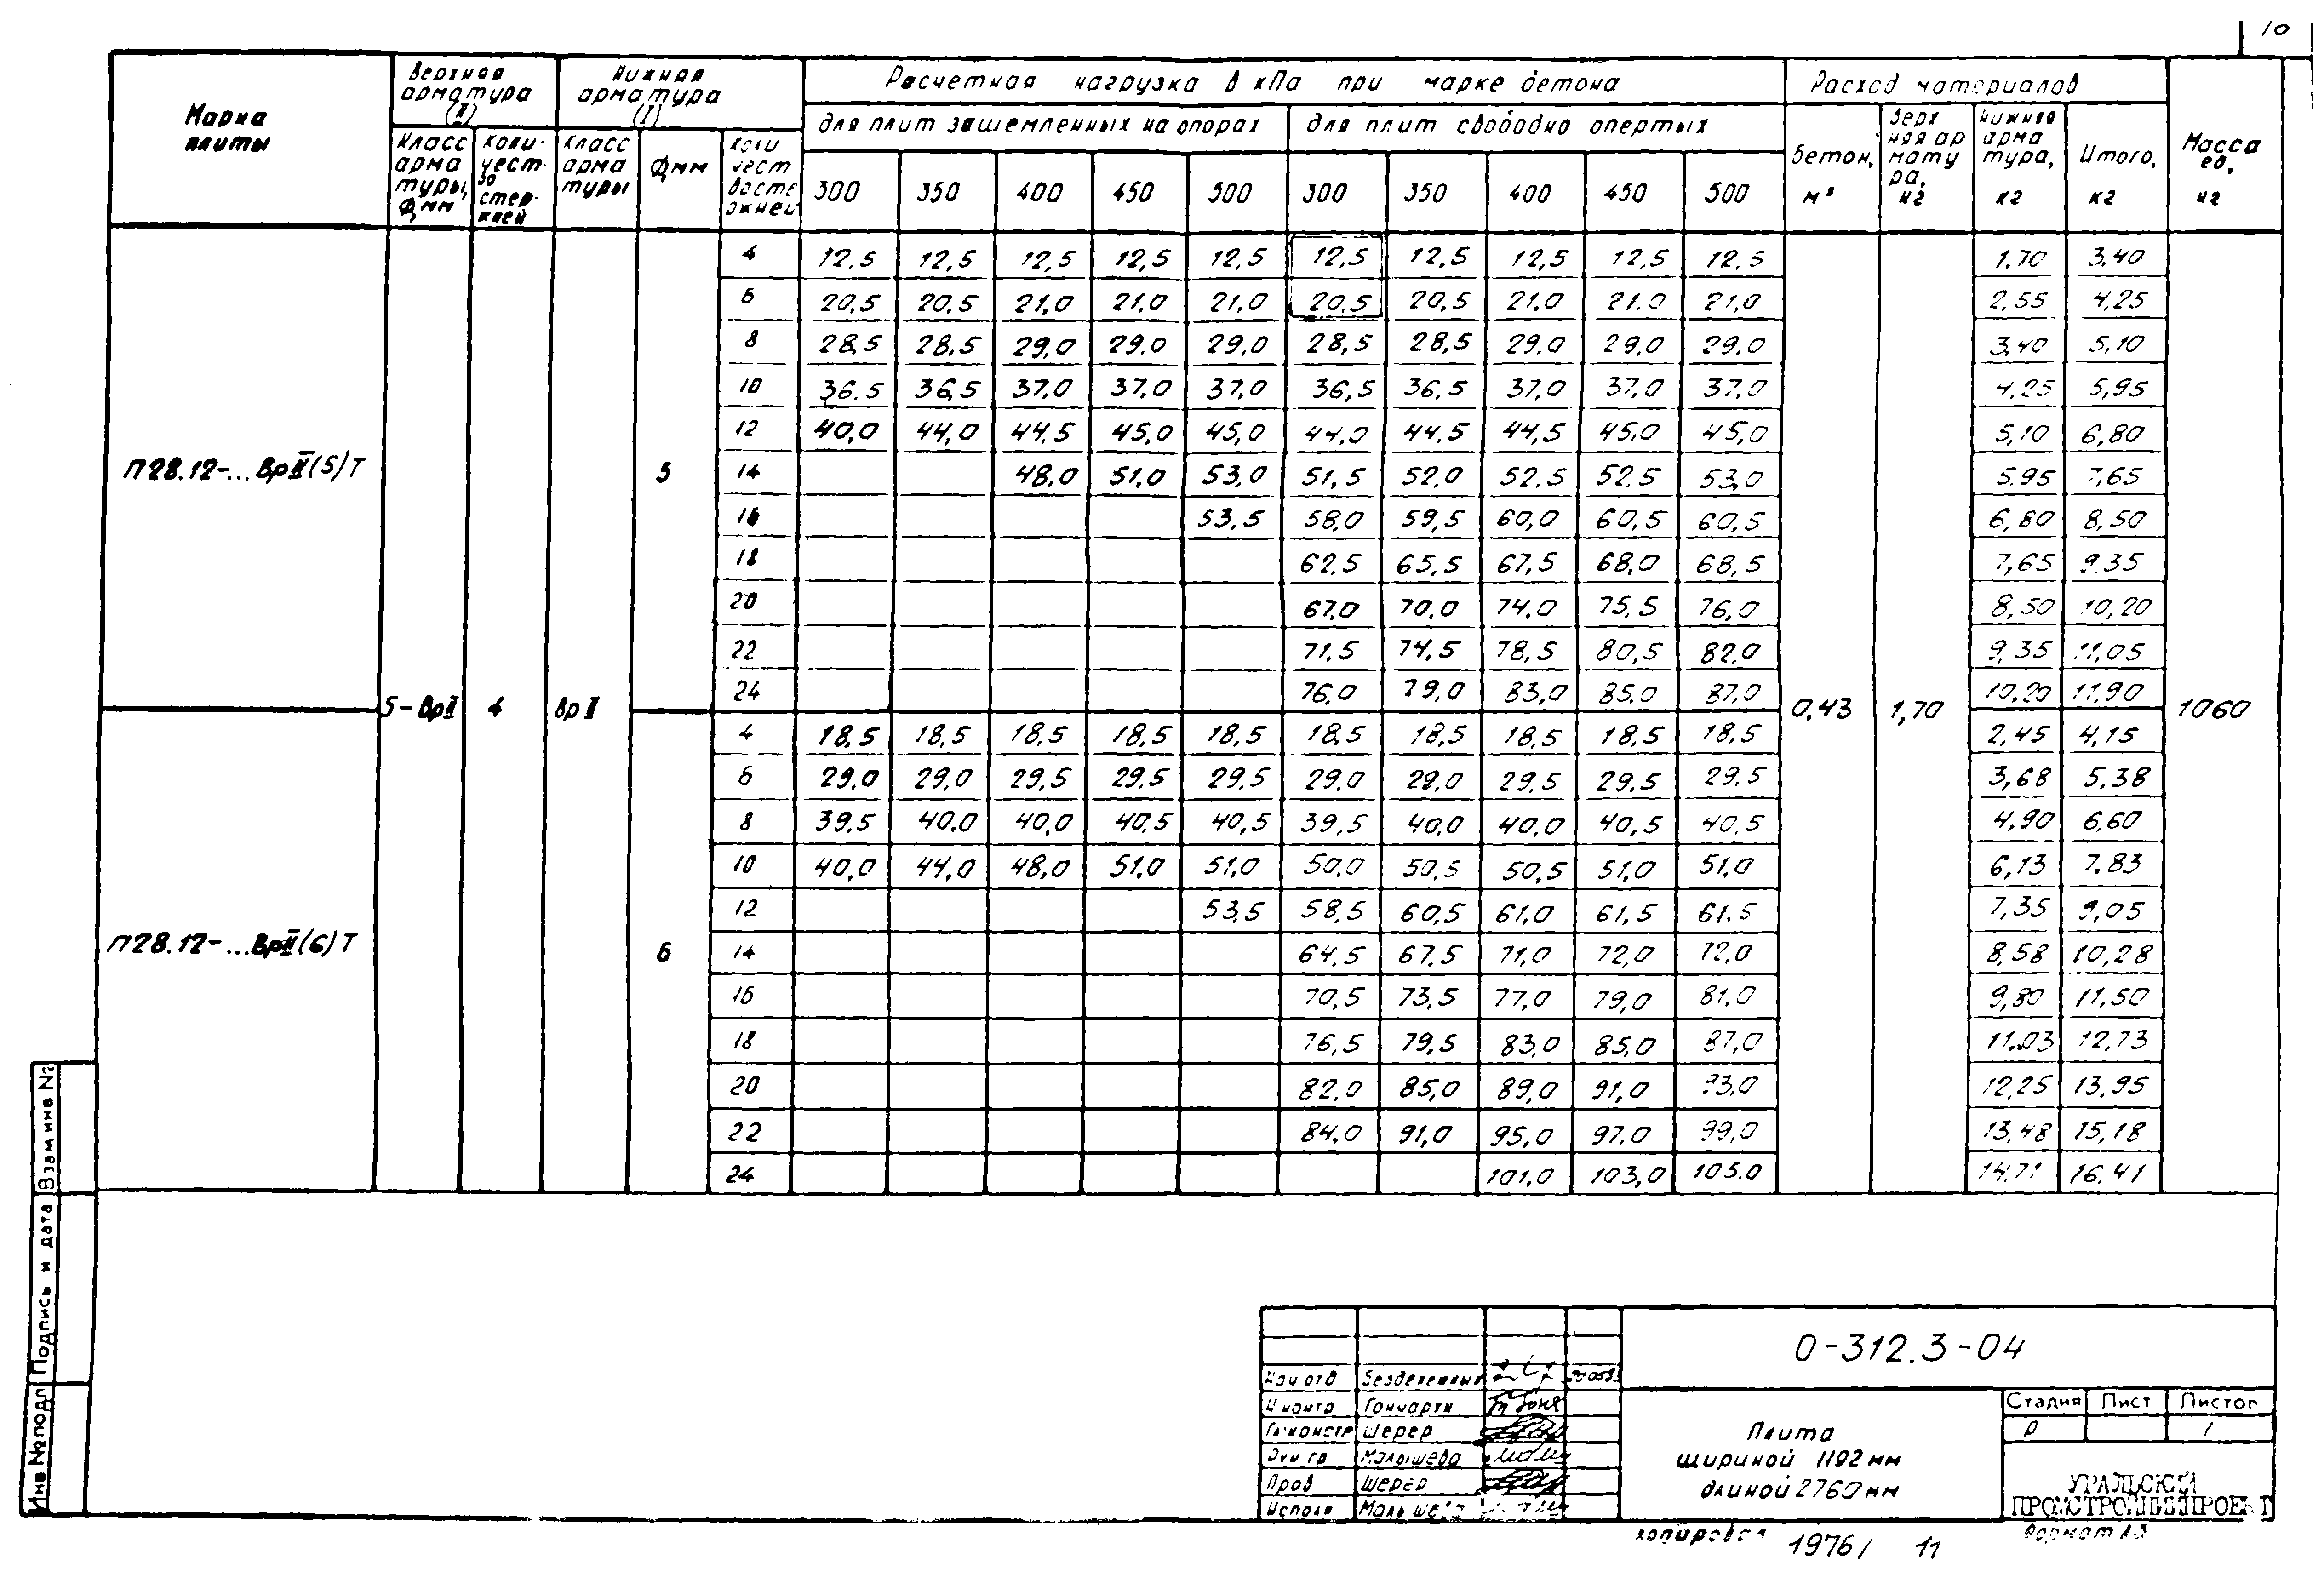 10
Марка плиты
Верхняя арматура (II)
Нижняя арматура (I)
Расчетная нагрузка в кПа при марке бетона
Расход материалов
Масса ед, кг
Класс арматуры, Фмм
Количество стержней
Класс арматуры
Фмм
Количество стержней
для плит защемленных на опорах
для плит свободно опертых
Бетон, м³
Верхняя арматура, кг
Нижняя арматура, кг
Итого, кг
300 350 400 450 500 300 350 400 450 500
П28.12-...ВрII(5)Т
5-ВрII 4 ВрII 5
0,43 1,70 1060
4 12,5 12,5 12,5 12,5 12,5 12,5 12,5 12,5 12,5 12,5 1,70 3,40
6 20,5 20,5 21,0 21,0 21,0 20,5 20,5 21,0 21,0 21,0 2,55 4,25
8 28,5 28,5 29,0 29,0 29,0 28,5 28,5 29,0 29,0 29,0 3,40 5,10
10 36,5 36,5 37,0 37,0 37,0 36,5 36,5 37,0 37,0 37,0 4,25 5,95
12 40,0 44,0 44,5 45,0 45,0 44,0 44,5 44,5 45,0 45,0 5,10 6,80
14 48,0 51,0 53,0 51,5 52,0 52,5 52,5 53,0 5,95 7,65
16 53,5 58,0 59,5 60,0 60,5 60,5 6,80 8,50
18 62,5 65,5 67,5 68,0 68,5 7,65 9,35
20 67,0 70,0 74,0 75,5 76,0 8,50 10,20
22 71,5 74,5 78,5 80,5 82,0 9,35 11,05
24 76,0 79,0 83,0 85,0 87,0 10,20 11,90
П28.12-...ВрII(6)Т
6
4 18,5 18,5 18,5 18,5 18,5 18,5 18,5 18,5 18,5 18,5 2,45 4,15
6 29,0 29,0 29,5 29,5 29,5 29,0 29,0 29,5 29,5 29,5 3,68 5,38
8 39,5 40,0 40,0 40,5 40,5 39,5 40,0 40,0 40,5 40,5 4,90 6,60
10 40,0 44,0 48,0 51,0 51,0 50,0 50,5 50,5 51,0 51,0 6,13 7,83
12 53,5 58,5 60,5 61,0 61,5 61,5 7,35 9,05
14 64,5 67,5 71,0 72,0 72,0 8,58 10,28
16 70,5 73,5 77,0 79,0 81,0 9,80 11,50
18 76,5 79,5 83,0 85,0 87,0 11,03 12,73
20 82,0 85,0 89,0 91,0 93,0 12,25 13,95
22 84,0 91,0 95,0 97,0 99,0 13,48 15,18
24 101,0 103,0 105,0 14,71 16,41
Взам инв №
Подпись и дата
Инв № подл
О-312.3-04
Нач отд
Н контр Гончарти
Гл констр Шерер
Рук гр Малышева
Пров. Шерер
Исполн Малышева
Плита
шириной 1192 мм
длиной 2760 мм
Стадия Лист Листов
Р 1
УРАЛЬСКИЙ
ПРОМСТРОЙНИИПРОЕКТ
Копировал 1976/ 11 Формат А3